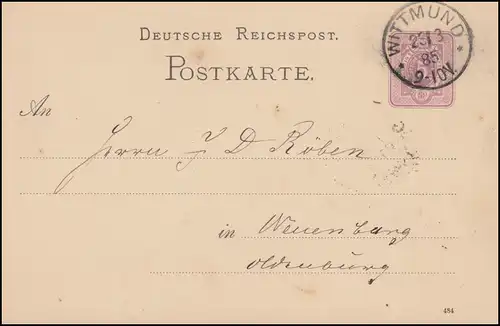 DEUTSCHE REICHSPOST.
POSTKARTE.
WITTMUND
85
9-10V.
An
Herrn J D Röben
in Neuenburg
Oldenburg
484